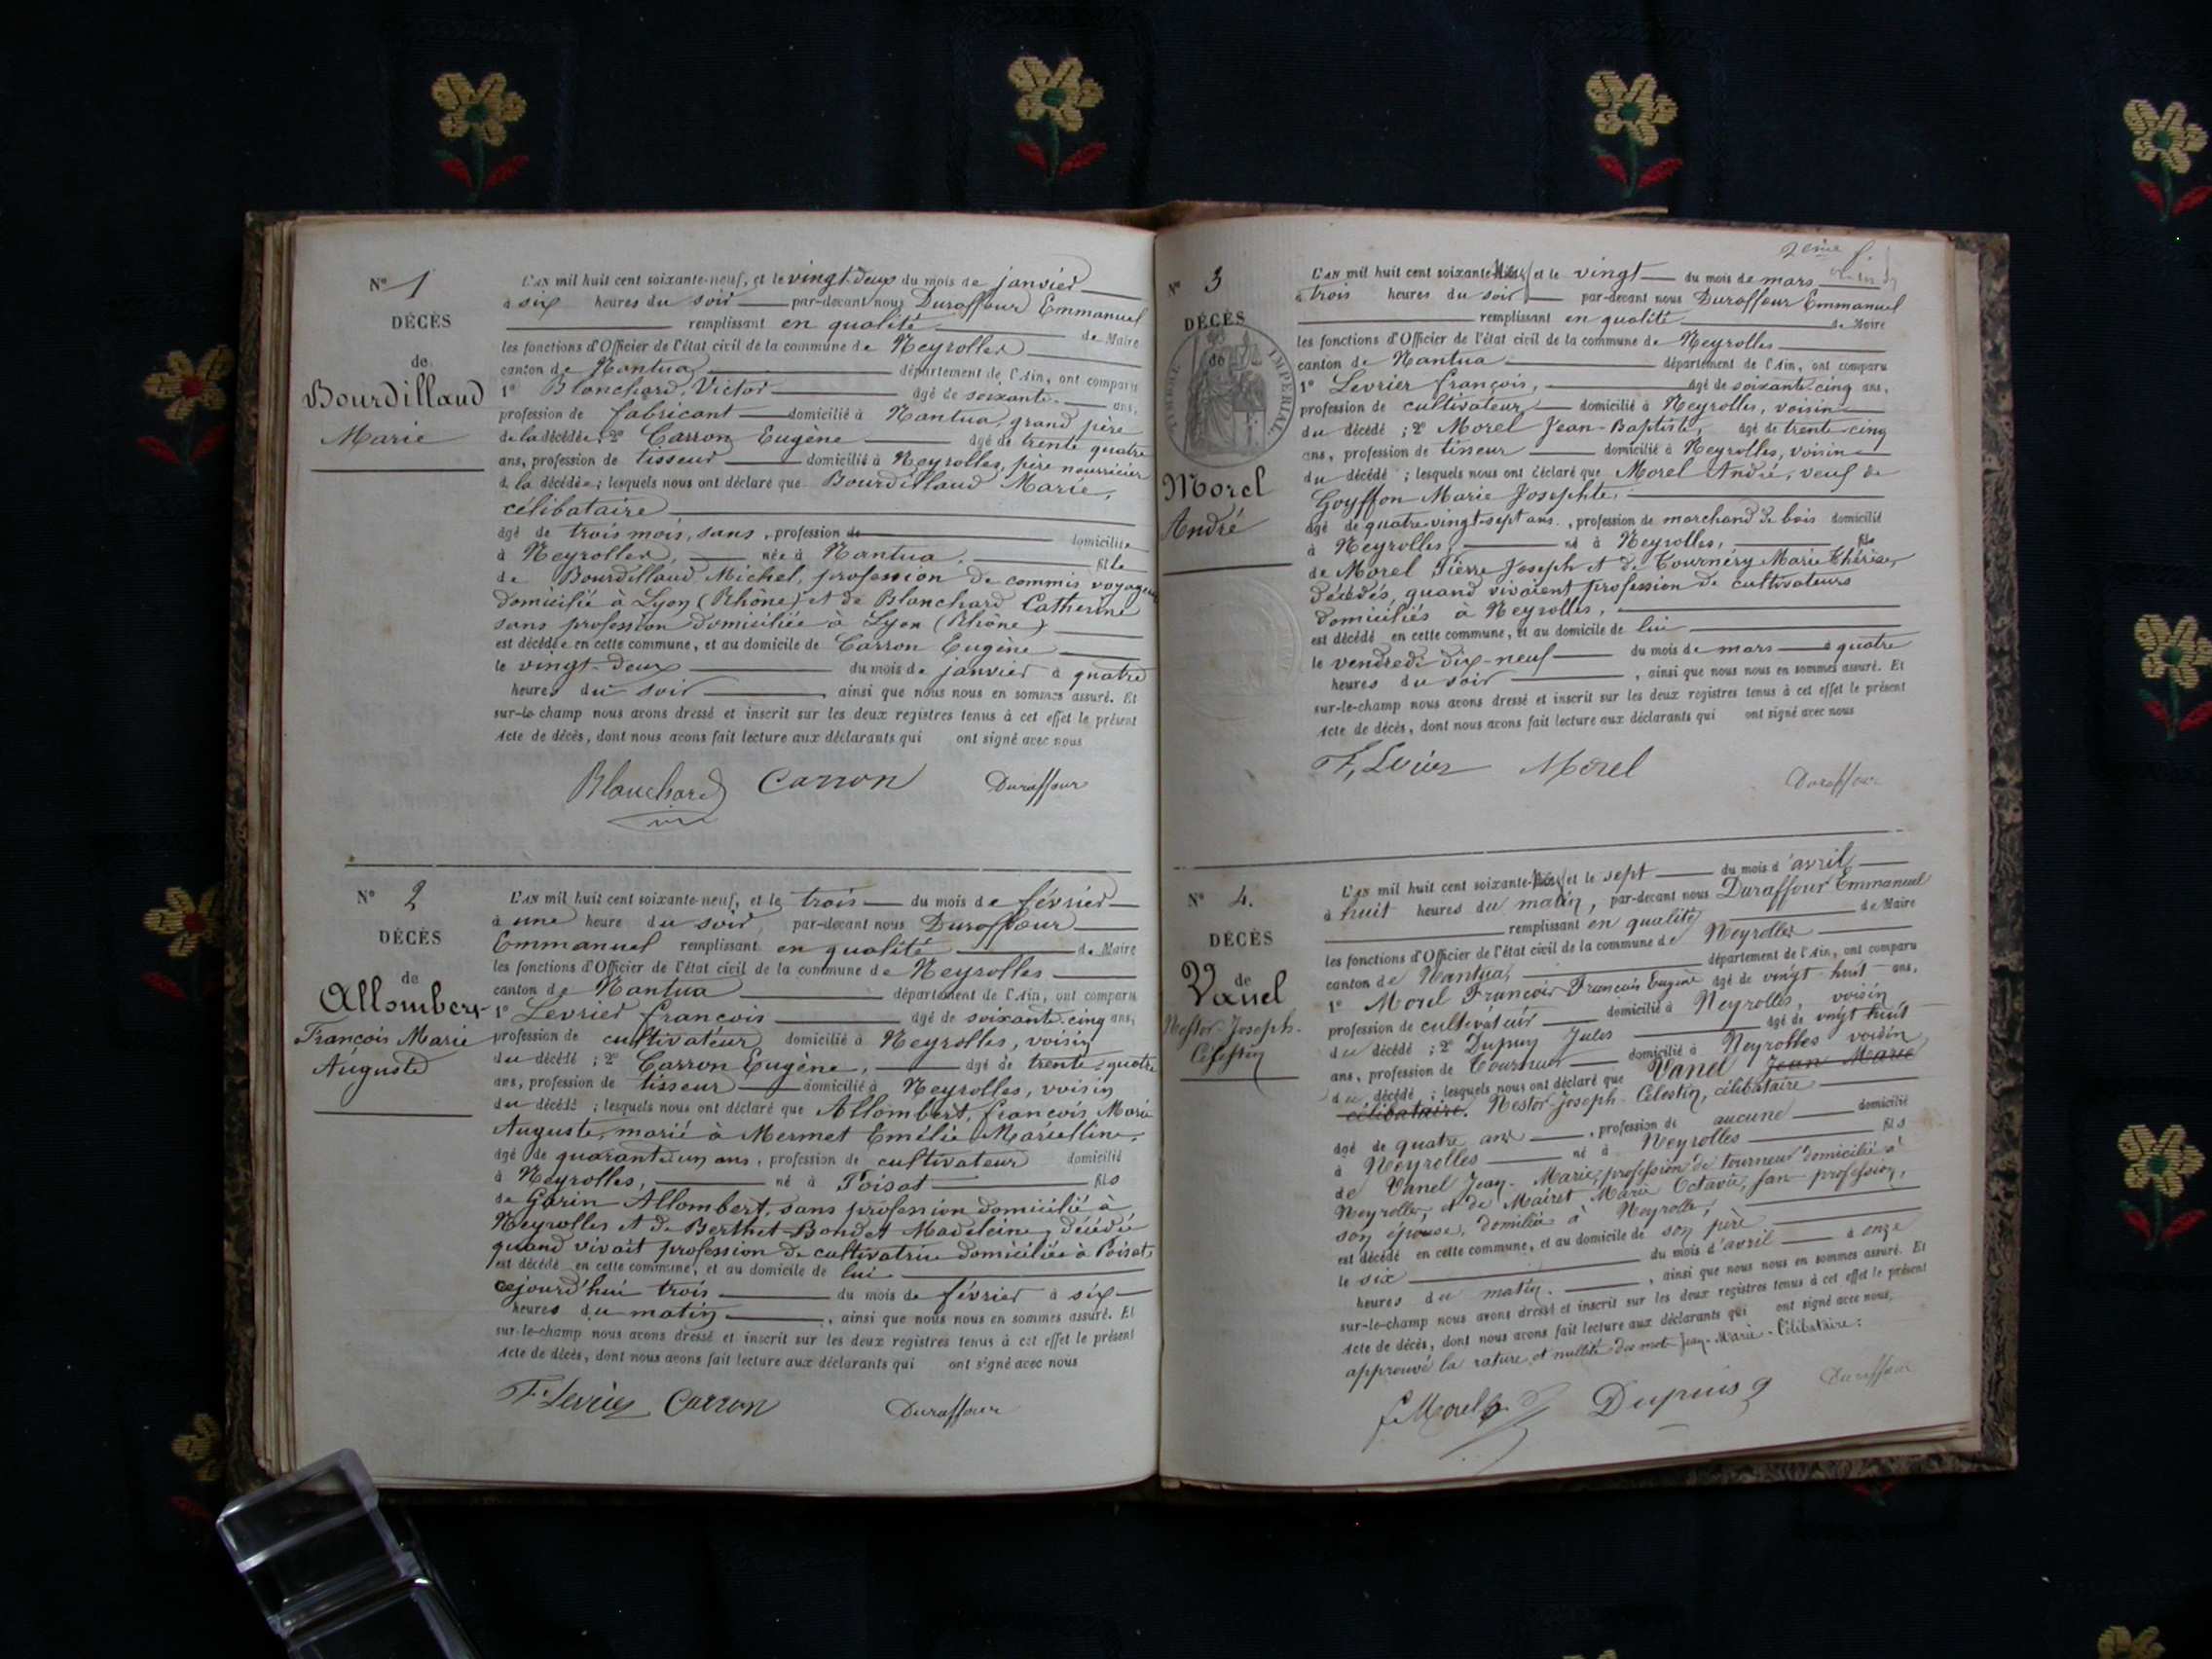 N° 1
DÉCÈS
de
Bourdillaud
Marie
L'AN mil huit cent soixante-neuf, et le vingt-deux du mois de janvier
à six heures du soir par-devant nous Duraffour Emmanuel
remplissant en qualité de Maire
les fonctions d'Officier de l'état civil de la commune de Neyrolles
canton de Nantua département de l'Ain, ont comparu
1° Blanchard, Victor âgé de soixante ans,
profession de fabricant domicilié à Nantua, grand père
de la décédée; 2° Carron Eugène âgé de trente quatre
ans, profession de tisseur domicilié à Neyrolles, père nourricier
de la décédée; lesquels nous ont déclaré que Bourdillaud Marie,
célibataire
âgé de trois mois, sans, profession de domicilié
à Neyrolles, née à Nantua, fille
de Bourdillaud Michel, profession de commis voyageur
domicilié à Lyon (Rhône) et de Blanchard Catherine
sans profession domiciliée à Lyon (Rhône)
est décédée en cette commune, et au domicile de Carron Eugène
le vingt-deux du mois de janvier à quatre
heures du soir, ainsi que nous nous en sommes assuré. Et
sur-le-champ nous avons dressé et inscrit sur les deux registres tenus à cet effet le présent
Acte de décès, dont nous avons fait lecture aux déclarants qui ont signé avec nous
Blanchard Carron Duraffour
N° 2
DÉCÈS
de
Allombert
François Marie
Auguste
L'AN mil huit cent soixante-neuf, et le trois du mois de février
à une heure du soir, par-devant nous Duraffour
Emmanuel remplissant en qualité de Maire
les fonctions d'Officier de l'état civil de la commune de Neyrolles
canton de Nantua département de l'Ain, ont comparu
1° Levrier françois âgé de soixante-cinq ans,
profession de cultivateur domicilié à Neyrolles, voisin
du décédé; 2° Carron Eugène, âgé de trente-quatre
ans, profession de tisseur domicilié à Neyrolles, voisin
du décédé; lesquels nous ont déclaré que Allombert, françois Marie
Auguste, marié à Mermet Emélie Marcelline,
âgé de quarante un ans, profession de cultivateur domicilié
à Neyrolles, né à Poisat fils
de Garin Allombert, sans profession domicilié à
Neyrolles et de Berthet-Bondet Madeleine, décédée
quand vivait profession de cultivatrice domiciliée à Poisat,
est décédé en cette commune, et au domicile de lui
cejourd'hui trois du mois de février à six
heures du matin, ainsi que nous nous en sommes assuré. Et
sur-le-champ nous avons dressé et inscrit sur les deux registres tenus à cet effet le présent
Acte de décès, dont nous avons fait lecture aux déclarants qui ont signé avec nous
F. Levrier Carron Duraffour
2ème f.
N° 3
DÉCÈS
de
TIMBRE IMPÉRIAL
Morel
André
L'AN mil huit cent soixante-neuf et le vingt du mois de mars
à trois heures du soir par-devant nous Duraffour Emmanuel
remplissant en qualité de Maire
les fonctions d'Officier de l'état civil de la commune de Neyrolles
canton de Nantua département de l'Ain, ont comparu
1° Levrier françois, âgé de soixante-cinq ans,
profession de cultivateur domicilié à Neyrolles, voisin
du décédé; 2° Morel Jean-Baptiste, âgé de trente-cinq
ans, profession de tisseur domicilié à Neyrolles, voisin
du décédé; lesquels nous ont déclaré que Morel André, veuf de
Goyffon Marie Josephte,
âgé de quatre-vingt-sept ans, profession de marchand de bois domicilié
à Neyrolles, né à Neyrolles, fils
de Morel Pierre Joseph et de Tournéry Marie Thérèse,
décédés, quand vivaient profession de cultivateurs
domiciliés à Neyrolles,
est décédé en cette commune, et au domicile de lui
le vendredi dix-neuf du mois de mars à quatre
heures du soir, ainsi que nous nous en sommes assuré. Et
sur-le-champ nous avons dressé et inscrit sur les deux registres tenus à cet effet le présent
Acte de décès, dont nous avons fait lecture aux déclarants qui ont signé avec nous
F. Levrier Morel Duraffour
N° 4.
DÉCÈS
de
Vanel
Nestor-Joseph-
Célestin
L'AN mil huit cent soixante-neuf et le sept du mois d'avril
à huit heures du matin, par-devant nous Duraffour Emmanuel
remplissant en qualité de Maire
les fonctions d'Officier de l'état civil de la commune de Neyrolles
canton de Nantua, département de l'Ain, ont comparu
1° Morel François François Eugène âgé de vingt-huit ans,
profession de cultivateur domicilié à Neyrolles, voisin
du décédé; 2° Dupuy Jules âgé de vingt huit
ans, profession de Tourneur domicilié à Neyrolles voisin
du décédé; lesquels nous ont déclaré que Vanel Jean Marie
célibataire. Nestor-Joseph-Célestin, célibataire
âgé de quatre ans, profession de aucune domicilié
à Neyrolles né à Neyrolles fils
de Vanel Jean-Marie, profession de tourneur domicilié à
Neyrolles, et de Mairet Marie Octavie, san profession,
son épouse, domiliée à Neyrolles,
est décédé en cette commune, et au domicile de son père
le six du mois d'avril à onze
heures du matin. , ainsi que nous nous en sommes assuré. Et
sur-le-champ nous avons dressé et inscrit sur les deux registres tenus à cet effet le présent
Acte de décès, dont nous avons fait lecture aux déclarants qui ont signé avec nous,
approuvé la rature et nullité des mots Jean-Marie-Célibataire:
f. Morel Dupuis Duraffour